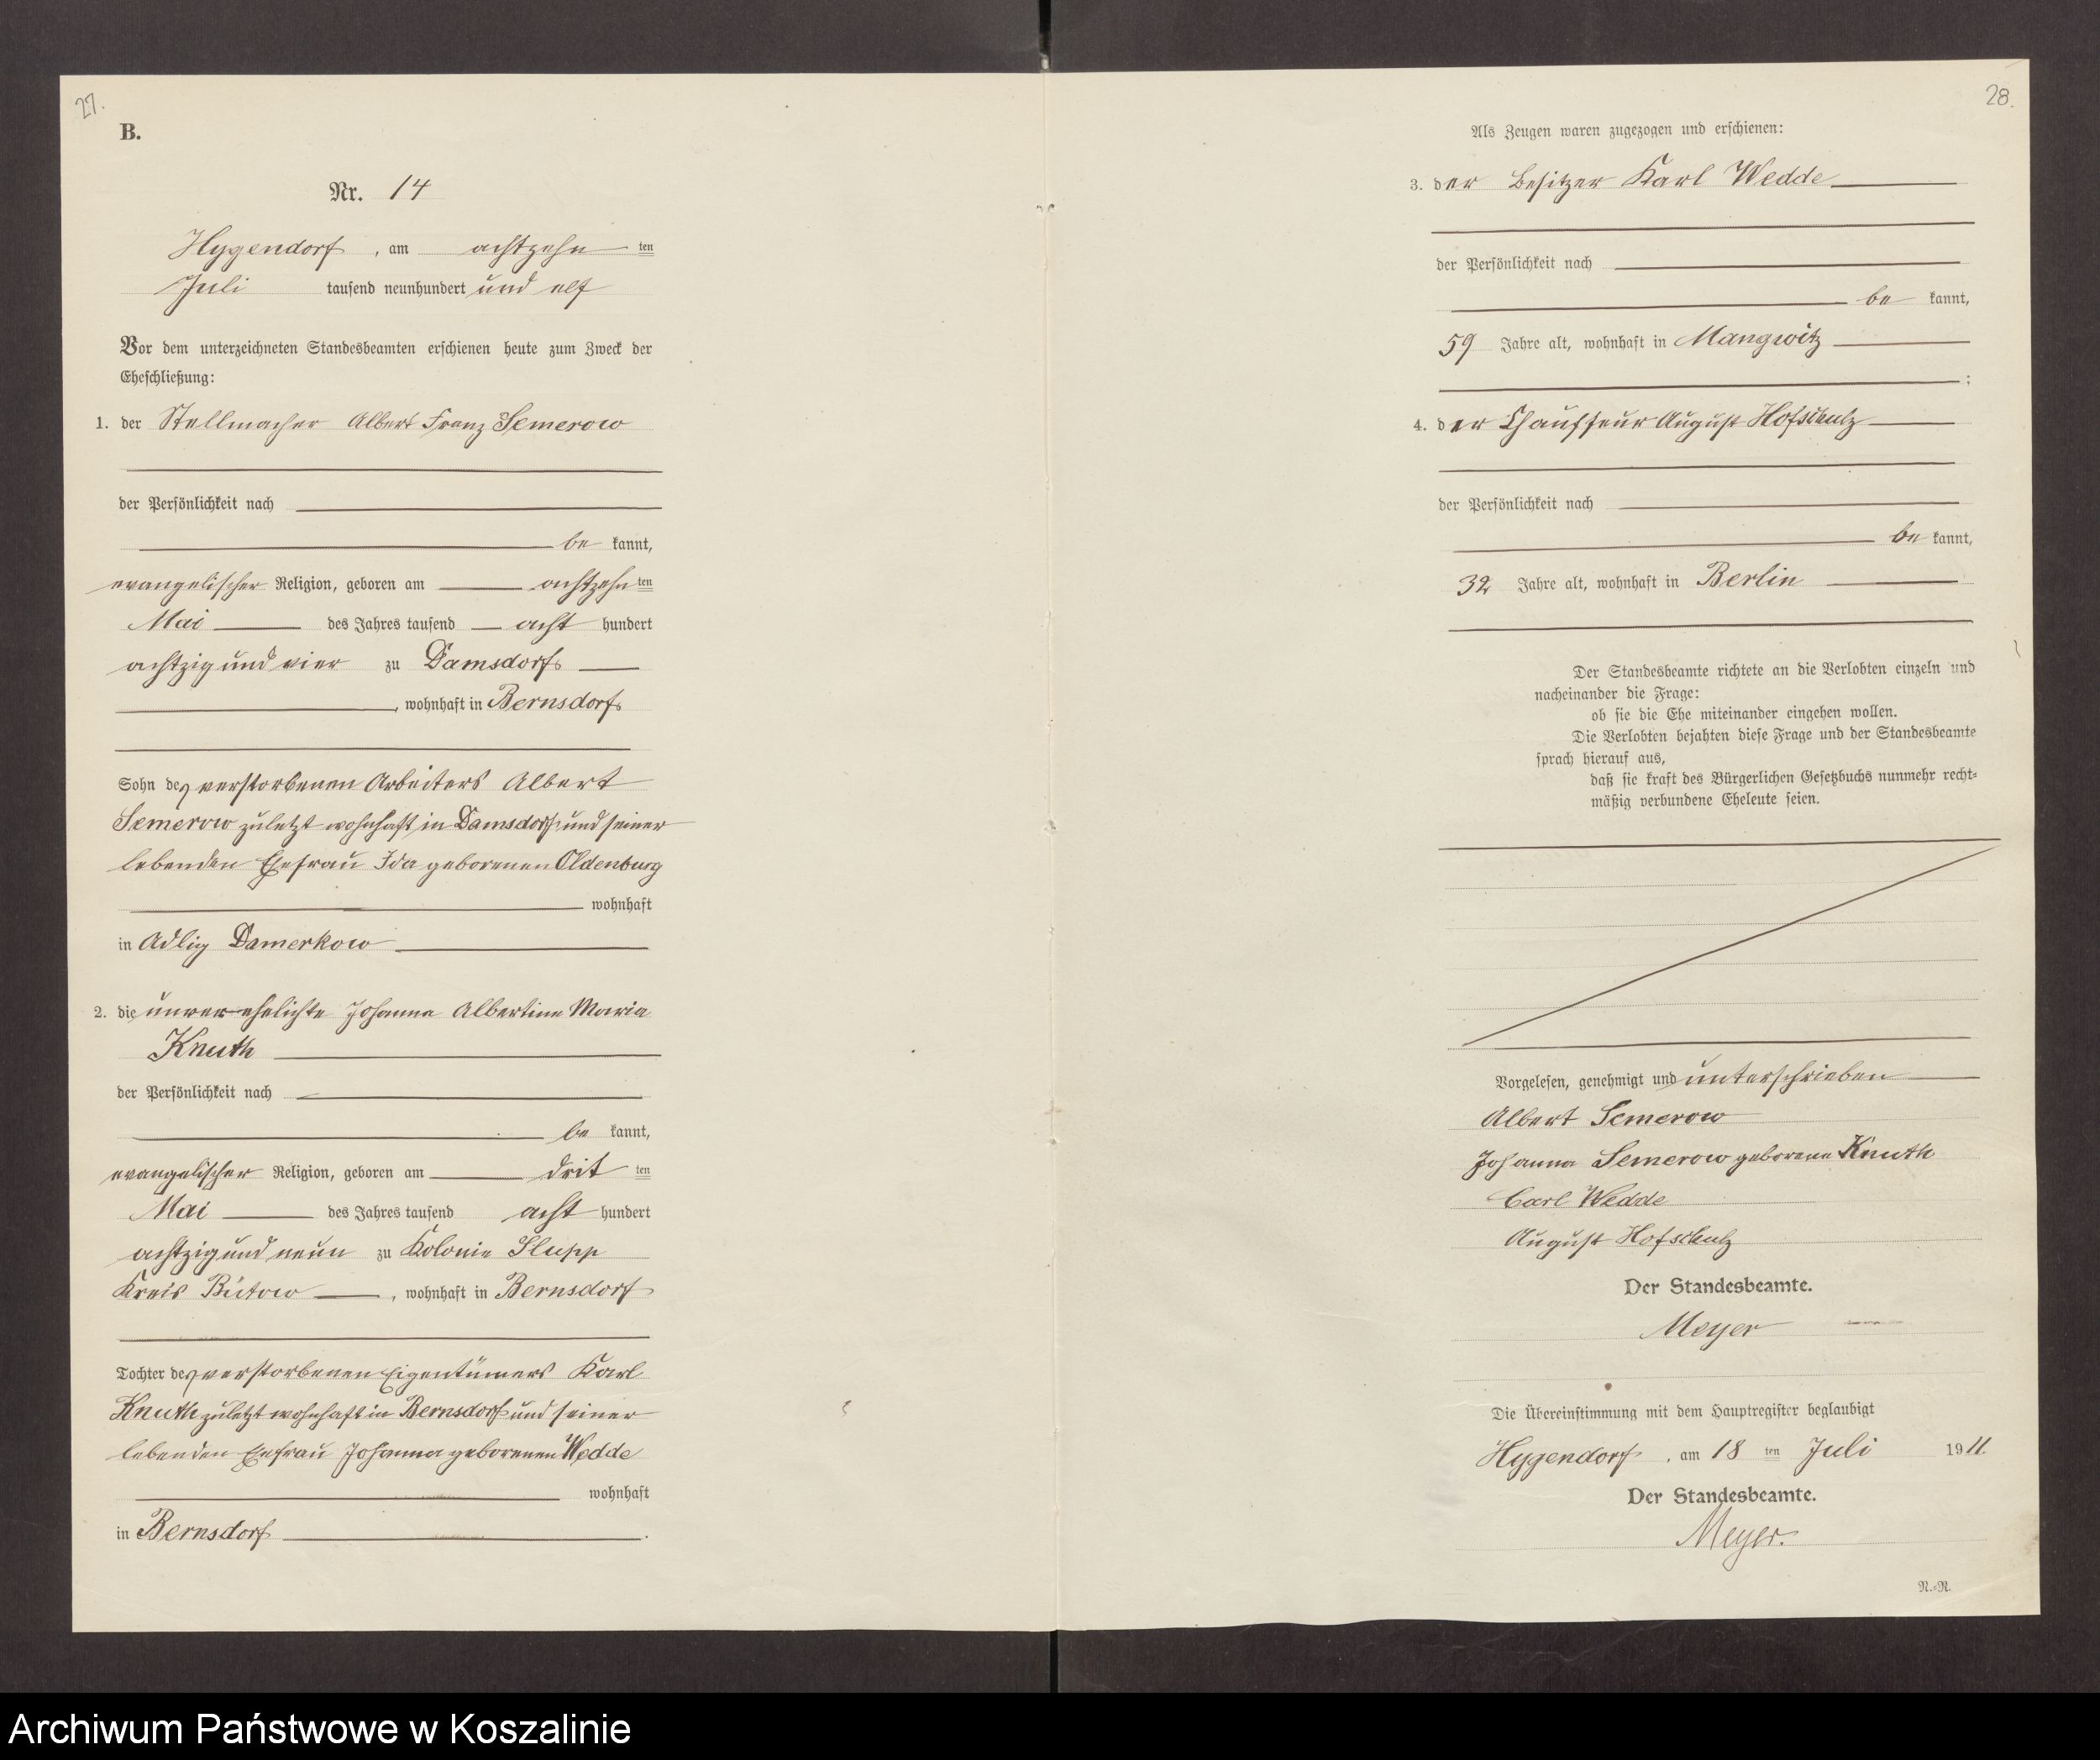 27.
B.
Nr. 14
Hygendorf, am achtzehnten
Juli tausend neunhundert und elf
Vor dem unterzeichneten Standesbeamten erschienen heute zum Zweck der
Eheschließung:
1. der Stellmacher Albert Franz Semerow
der Persönlichkeit nach
be kannt,
evangelischer Religion, geboren am achtzehn ten
Mai des Jahres tausend acht hundert
achtzig und vier zu Damsdorf
, wohnhaft in Bernsdorf
Sohn des verstorbenen Arbeiters Albert
Semerow zuletzt wohnhaft in Damsdorf und seiner
lebenden Ehefrau Ida geborenen Oldenburg
wohnhaft
in Adlig Damerkow
2. die unverehelichte Johanna Albertine Maria
Knuth
der Persönlichkeit nach
be kannt,
evangelischer Religion, geboren am drit ten
Mai des Jahres tausend acht hundert
achtzig und neun zu Kolonie Slupp
Kreis Bütow, wohnhaft in Bernsdorf
Tochter des verstorbenen Eigentümers Karl
Knuth zuletzt wohnhaft in Bernsdorf und seiner
lebenden Ehefrau Johanna geborenen Wedde
wohnhaft
in Bernsdorf.
28.
Als Zeugen waren zugezogen und erschienen:
3. der Besitzer Karl Wedde
der Persönlichkeit nach
be kannt,
59 Jahre alt, wohnhaft in Mangwitz
;
4. der Chauffeur August Hofschulz
der Persönlichkeit nach
be kannt,
32 Jahre alt, wohnhaft in Berlin
Der Standesbeamte richtete an die Verlobten einzeln und
nacheinander die Frage:
ob sie die Ehe miteinander eingehen wollen.
Die Verlobten bejahten diese Frage und der Standesbeamte
sprach hierauf aus,
daß sie kraft des Bürgerlichen Gesetzbuchs nunmehr recht-
mäßig verbundene Eheleute seien.
Vorgelesen, genehmigt und unterschrieben
Albert Semerow
Johanna Semerow geborene Knuth
Carl Wedde
August Hofschulz
Der Standesbeamte.
Meyer
Die Übereinstimmung mit dem Hauptregister beglaubigt
Hygendorf, am 18 ten Juli 1911.
Der Standesbeamte.
Meyer.
N.-R.
Archiwum Państwowe w Koszalinie